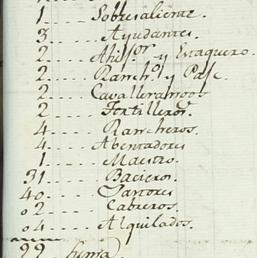 1 .... Sobresaliente.
3 .... Ayudantes.
2 .... y Estaquero.
2 .... Ranch.º y
2 .... Cavallerangos
2 .... Tortilleros.
4 .... Rancheros.
4 .... Abentadores
1 .... Maestro.
31 .... Bacieros.
40 .... Pastores
02 .... Cabreros.
04 .... Alquilados.
99 .. Suma